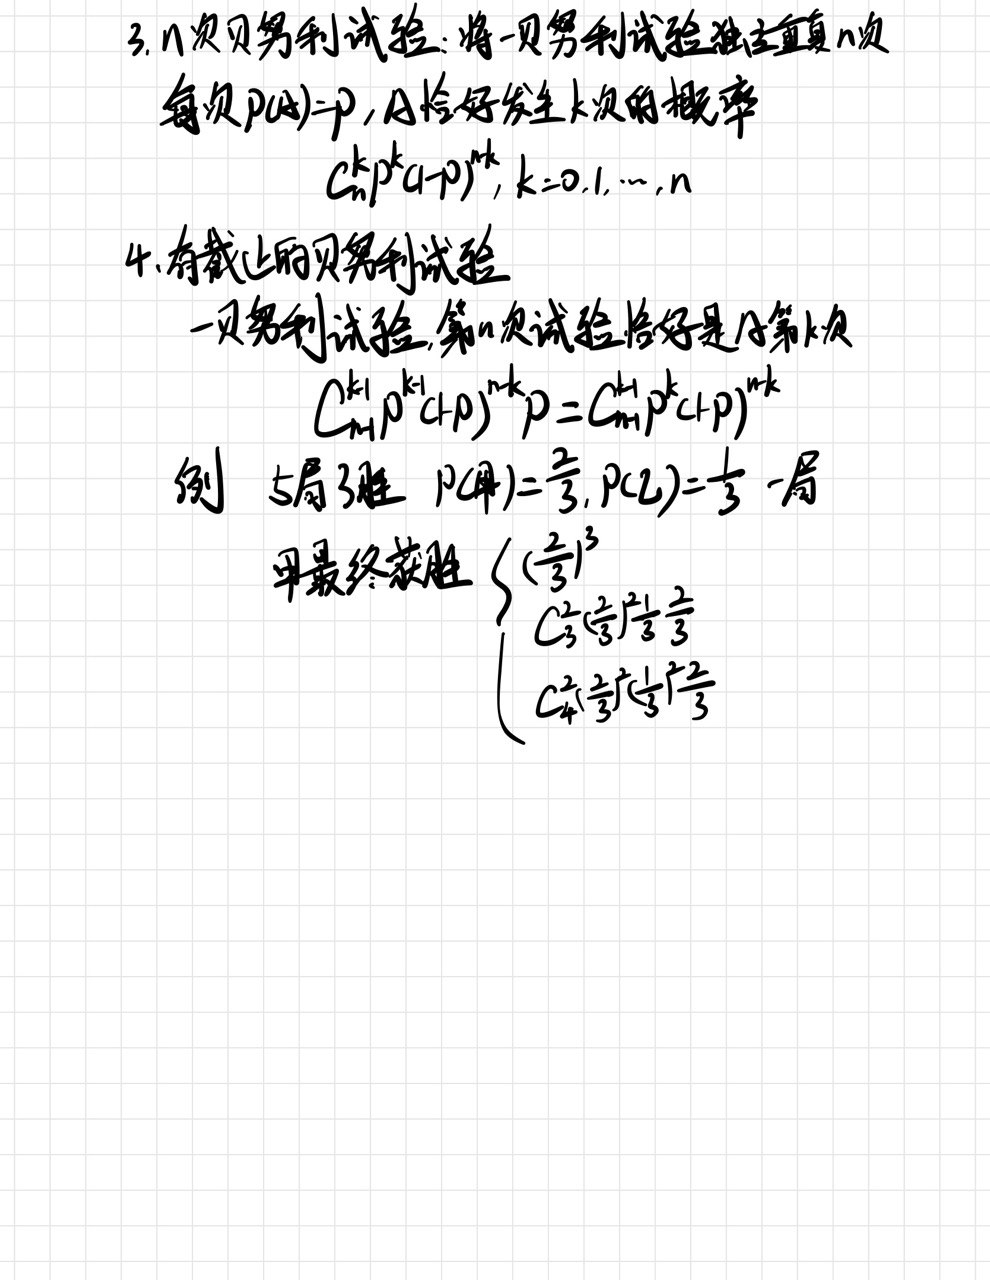 3. n次贝努利试验：将一贝努利试验独立重复n次
每次P(A)=p，A恰好发生k次的概率
C_n^k p^k (1-p)^{n-k}, k=0,1,…,n
4、有截止的贝努利试验
一贝努利试验，第n次试验恰好是A第k次
C_{n-1}^{k-1} p^{k-1} (1-p)^{n-k} p = C_{n-1}^{k-1} p^k (1-p)^{n-k}
例 5局3胜 P(甲)=2/3, P(乙)=1/3 一局
甲最终获胜 { (2/3)^3
C_3^2 (2/3)^2 1/3 2/3
C_4^2 (2/3)^2 (1/3)^2 2/3